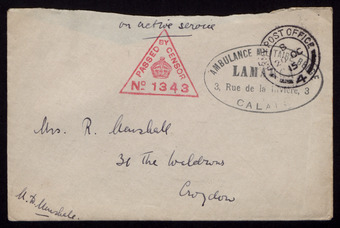 on active service
PASSED BY CENSOR
No 1343
POST OFFICE
OC
15
4
AMBULANCE
LAM
3, Rue de la Rivière, 3
CALAIS
Mrs. R. Marshall.
31 The Waldrons
Croydon
Marshall.